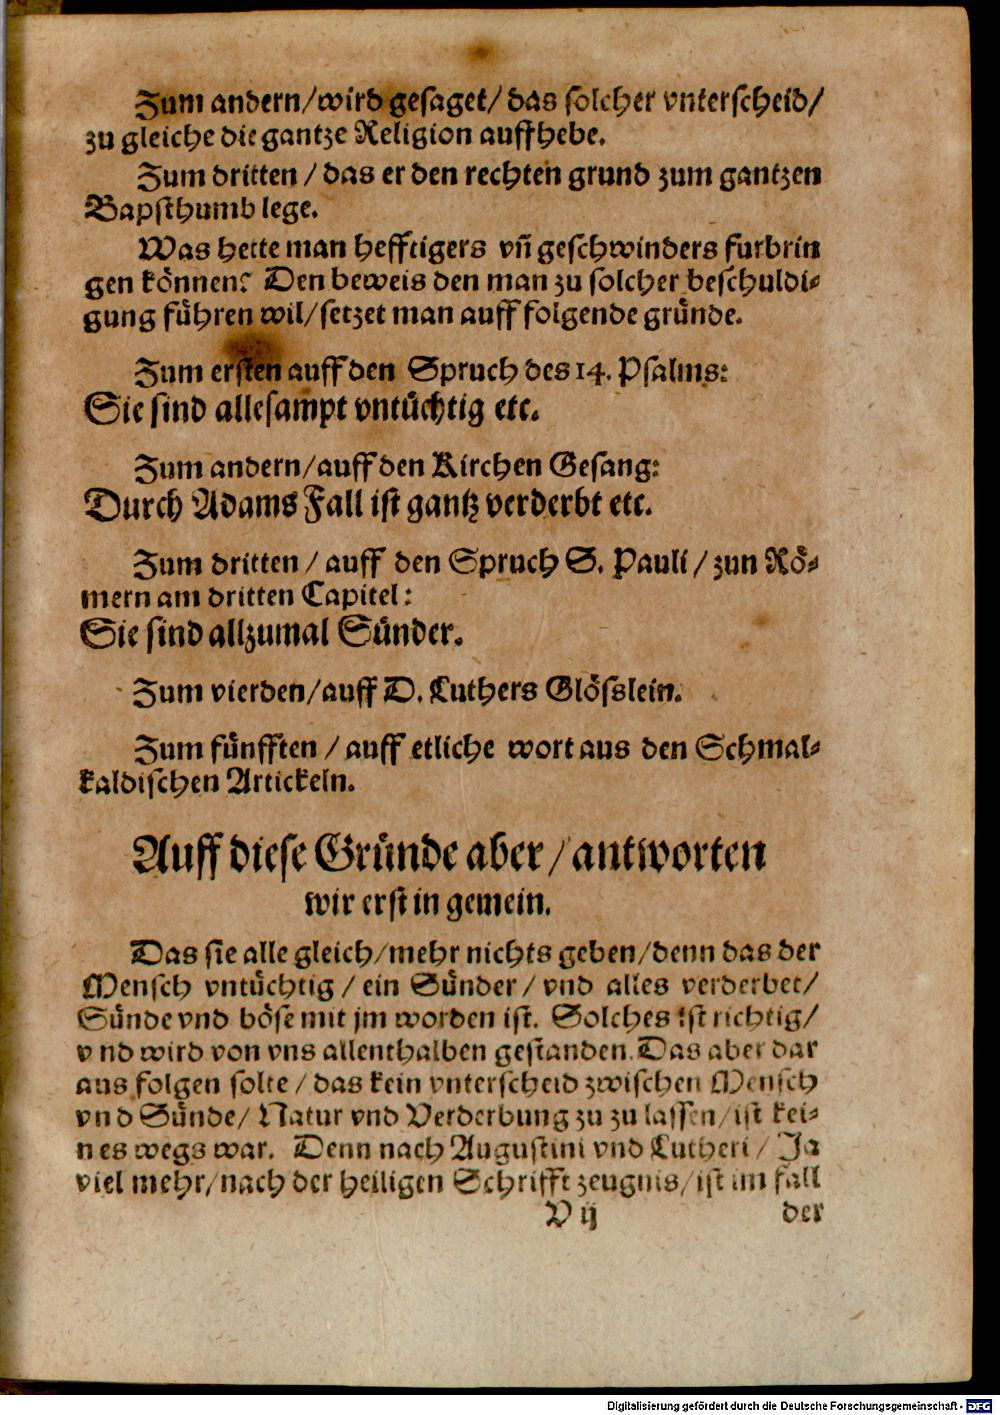 Zum andern/wird gesaget/ das solcher vnterscheid/
zu gleiche die gantze Religion auffhebe.
Zum dritten / das er den rechten grund zum gantzen
Bapsthumb lege.
Was hette man hefftigers vñ geschwinders furbrin
gen können? Den beweis den man zu solcher beschuldi-
gung führen wil/setzet man auff folgende gründe.
Zum ersten auff den Spruch des 14. Psalms:
Sie sind allesampt vntüchtig etc.
Zum andern/auff den Kirchen Gesang:
Durch Adams Fall ist gantz verderbt etc.
Zum dritten / auff den Spruch S. Pauli / zun Rö-
mern am dritten Capitel:
Sie sind allzumal Sünder.
Zum vierden/auff D. Luthers Glösslein.
Zum fünfften / auff etliche wort aus den Schmal-
kaldischen Artickeln.
Auff diese Gründe aber/antworten
wir erst in gemein.
Das sie alle gleich/mehr nichts geben/denn das der
Mensch vntüchtig / ein Sünder / vnd alles verderbet/
Sünde vnd böse mit jm worden ist. Solches ist richtig/
vnd wird von vns allenthalben gestanden. Das aber dar
aus folgen solte / das kein vnterscheid zwischen Mensch
vnd Sünde/ Natur vnd Verderbung zu zu lassen/ist kei-
nes wegs war. Denn nach Augustini vnd Lutheri / Ja
viel mehr/nach der heiligen Schrifft zeugnis/ist im fall
V ij der
Digitalisierung gefördert durch die Deutsche Forschungsgemeinschaft - DFG